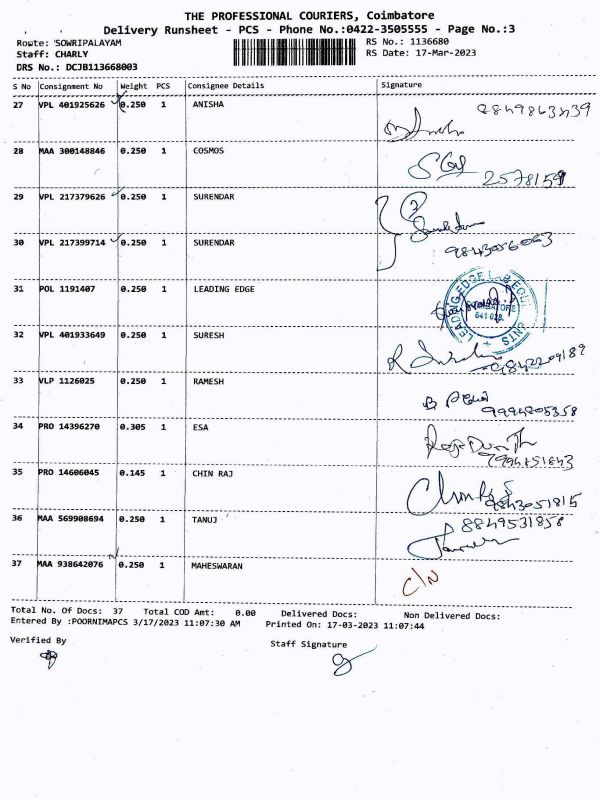 THE PROFESSIONAL COURIERS, Coimbatore
Delivery Runsheet - PCS - Phone No.:0422-3505555 - Page No.:3
Route: SOWRIPALAYAM
Staff: CHARLY
DRS No.: DCJB113668003
RS No.: 1136680
RS Date: 17-Mar-2023
S No Consignment No Weight PCS Consignee Details Signature
27 VPL 401925626 0.250 1 ANISHA
28 MAA 300148846 0.250 1 COSMOS
2578159
29 VPL 217379626 0.250 1 SURENDAR
30 VPL 217399714 0.250 1 SURENDAR
31 POL 1191407 0.250 1 LEADING EDGE
32 VPL 401933649 0.250 1 SURESH
9842209189
33 VLP 1126025 0.250 1 RAMESH
9994205358
34 PRO 14396270 0.305 1 ESA
35 PRO 14606045 0.145 1 CHIN RAJ
9843051815
36 MAA 569908694 0.250 1 TANUJ
8849531858
37 MAA 938642076 0.250 1 MAHESWARAN
C/N
Total No. Of Docs: 37 Total COD Amt: 0.00 Delivered Docs: Non Delivered Docs:
Entered By :POORNIMAPCS 3/17/2023 11:07:30 AM Printed On: 17-03-2023 11:07:44
Verified By
Staff Signature